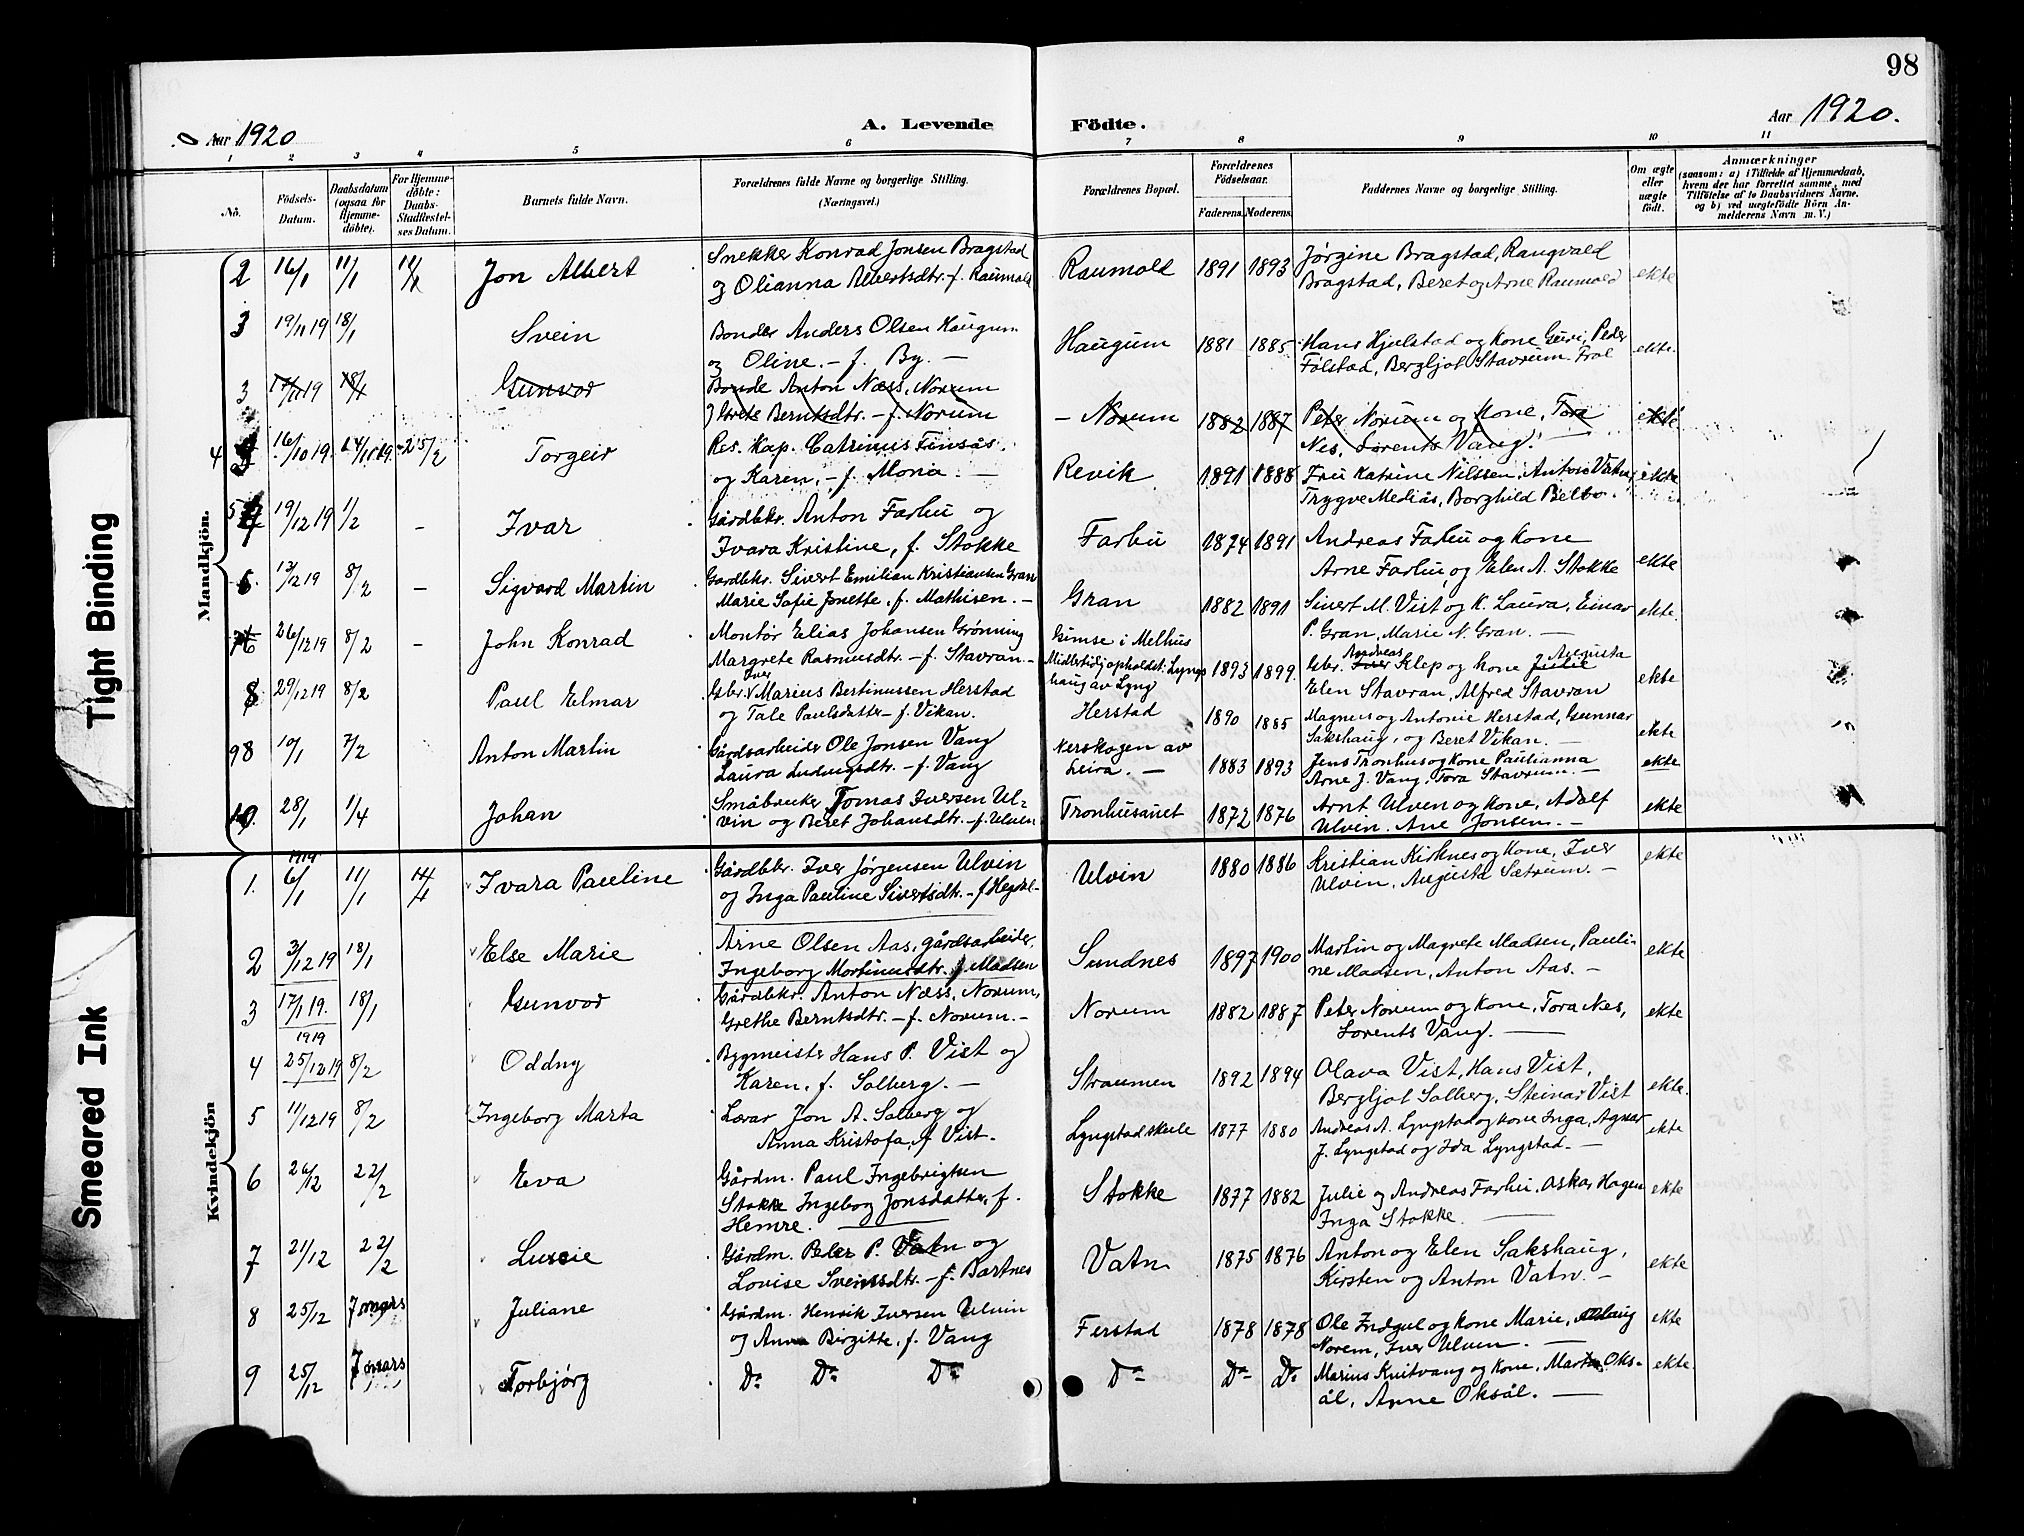 98
Aar 1920
A. Levende Födte.
Aar 1920.
1 2 3 4 5 6 7 8 9 10 11
No.
Födsels-
Datum.
Daabsdatum
(ogsaa for
Hjemme-
döbte).
For Hjemme-
döbte:
Daabs-
Stadfæstel-
ses Datum.
Barnets fulde Navn.
Forældrenes fulde Navne og borgerlige Stilling.
(Næringsvei.)
Forældrenes Bopæl.
Forældrenes
Födselsaar.
Faderens. Moderens.
Faddernes Navne og borgerlige Stilling.
Om ægte
eller
uægte
født.
Anmærkninger
(saasom: a) i Tilfælde af Hjemmedaab,
hvem der har forrettet samme, med
Tilføielse af to Daabsvidners Navne.
og b) ved uægtefödte Börn An-
melderens Navn m. V.)
Mandkjön.
2 16/1 11/1 11/1 Jon Albert Snekker Konrad Jonsen Bragstad Raumold 1891 1893 Jørgine Bragstad, Rangvald ekte
og Olianna Albertsdtr. f. Raumold Bragstad, Beret og Arne Raumold
3 19/11 19 18/1 Svein Bonder Anders Olsen Haugum Haugum 1881 1885 Hans Hjelstad og kone Guri, Peder ekte.
og Oline. - f. By. - Følstad, Bergljot Stavrum Frol
3 17/11 19 18/1 Gunvor Bonde Anton Næss, Norum - Norum 1882 1887 Peter Norum og Kone, Tora ekte
Grete Berntsdtr. - f. Norum Nes, Lorents Vang.
4 16/10 19. 24/10 19. 25/2 Torgeir Res. Kap. Catrinus Finsås. Revik 1891 1888 Fru Katrine Nilssen, Anton Vatn, ekte
og Karen, - f. Mona. - Trygve Mediås, Borghild Belbo.
5 19/12 19 1/2 - Ivar Gårdbkr. Anton Farbu og Farbu 1874 1891 Andreas Farbu og kone ekte
Ivara Kristine, f. Stokke Arne Farbu, og Elen A. Stokke
6. 13/12 19 8/2 - Sigvard Martin Gardbkr. Sivert Emilian Kristiansen Gran Gran 1882 1891 Sivert M. Vist og K. Laura, Einar ekte.
Marie Sofie Jonette, f. Mathisen. - P. Gran, Marie N. Gran. -
7 26/12 19 8/2 - John Konrad Montør Elias Johansen Grønning Gimse i Melhus 1893 1899. Gbr. Andreas Klep og kone Augusta ekte
Margrete Rasmusdtr. - f. Stavran. - Midlertidj opholdst: Lyngs Elen Stavran, Alfred Stavran
haug av Lyng
8 29/12 19 8/2 Paul Elmar Gbr. Iver Marius Bertinussen Herstad Herstad 1890 1885 Magnus og Antonie Herstad, Gunnar ekte
og Tale Paulsdatter - f. Vikan. Sakshaug, og Beret Vikan. -
98 10/1 7/2 Anton Martin Gårdsarbeider Ole Jonsen Vang Nerskogen av 1883 1893 Jens Tronhus og Kone Paulianna ekte
Laura Ludvigsdtr. - f. Vang Leira. - Arne J. Vang, Tora Stavrum. -
10. 28/1 1/4 Johan Småbruker Tomas Iversen Ul- Tronhusaunet 1872 1876 Arnt Ulven og kone, Adolf ekte
vin og Beret Johansdtr. - f. Ulven Ulvin. Ane Jonsen. -
Kvindekjön
1919
1. 6/1 11/1 11/1 Ivara Pauline Gårdbkr. Iver Jørgensen Ulvin Ulvin 1880 1886 Kristian Kirknes og Kone, Iver ekte
og Inga Pauline Sivertsdtr. - f Hegdal - Ulvin, Augusta Sætrum. -
2 3/12 19 18/1 Else Marie Arne Olsen Aas, gårdsarbeider, Sundnes 1897 1900 Martin og Magrete Madsen, Pauli- ekte
Ingeborg Mortinusdtr. f. Madsen ne Madsen, Anton Aas. -
3 17/1 19. 18/1 Gunvor Gårdbkr. Anton Næss, Norum, Norum 1882 1887 Peter Norum og kone, Tora Nes, ekte
1919 Grethe Berntsdtr. - f. Norum. - Lorents Vang. -
4 25/12 19 8/2 Oddny Bygmeister Hans P. Vist og Straumen 1892 1894 Olava Vist, Hans Vist, ekte.
Karen, f. Salberg. - Bergljot Salberg, Steinar Vist
5 11/12 19 8/2 Ingeborg Marta Lærar Jon A. Salberg og Lyngstad skule 1877 1880 Andreas A. Lyngstad og kone Inga, Agnar ekte
Anna Kristofa, f. Vist. J. Lyngstad og Ida Lyngstad. -
6 26/12 22/2 Eva Gårdm. Paul Ingebrigtsen Stokke 1877 1882 Julie og Andreas Farbu, Oskar Hagen ekte
Stokke Ingeborg Jonsdatter, f. Inga Stokke. -
Hemre. -
7 21/12 22/2 Luscie Gårdm. Peter P. Vatn og Vatn 1875 1876 Anton og Elen Sakshaug, ekte
Lovise Svensdtr. - f. Bartnes Kirsten og Anton Vatn. -
8 25/12 7 mars Juliane Gårdm. Henrik Iversen Ulvin Ferstad 1878 1878 Ole Indgul og kone Marie, Aslaug ekte
og Anna Birgitte, f. Vang Norem, Iver Ulven. -
9 25/12 7 mars Torbjørg Do Do Do Do Do Do Marius Kvitvang og Kone, Marta Oks- ekte
ål, Anne Oksål. -
Tight Binding
Smeared Ink